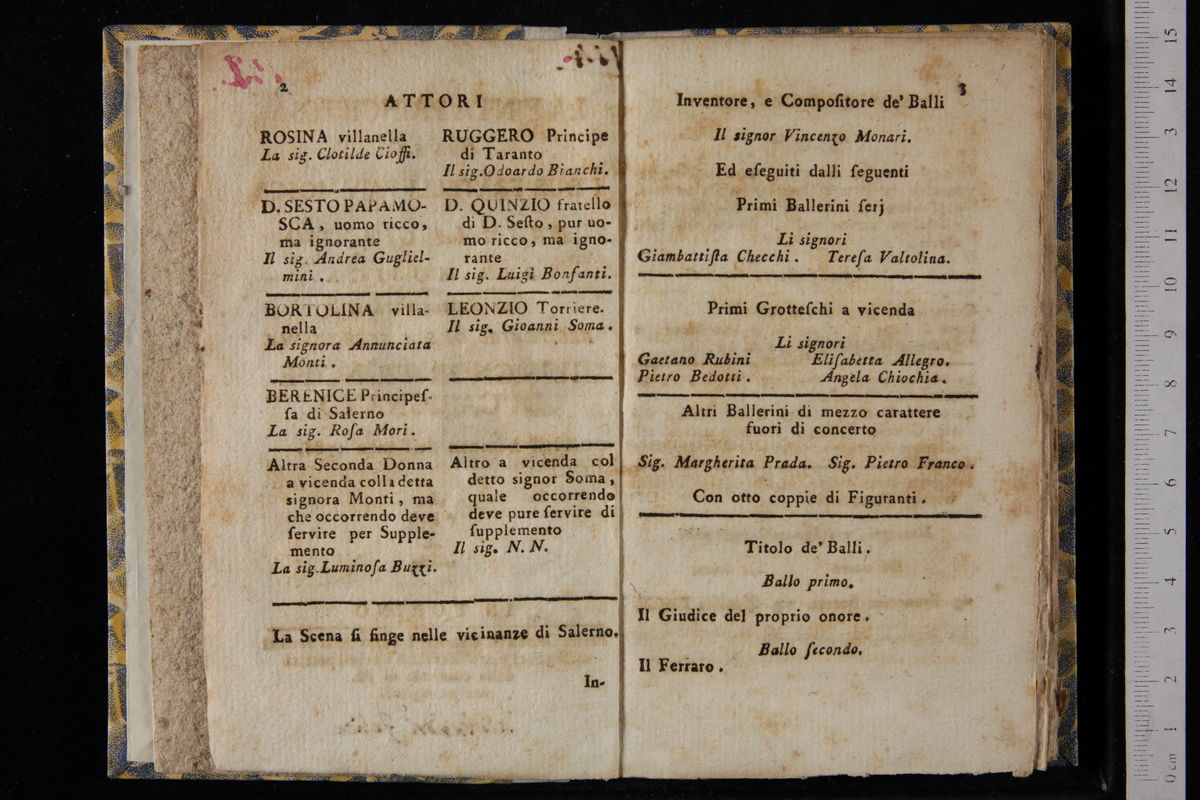 2
ATTORI
ROSINA villanella
La sig. Clotilde Cioffi.
D. SESTO PAPAMO-
SCA, uomo ricco,
ma ignorante
Il sig. Andrea Gugliel-
mini.
BORTOLINA villa-
nella
La signora Annunciata
Monti.
BERENICE Principeſ-
ſa di Salerno
La sig. Roſa Mori.
Altra Seconda Donna
a vicenda colla detta
signora Monti, ma
che occorrendo deve
ſervire per Supple-
mento
La sig. Luminoſa Buzzi.
RUGGERO Principe
di Taranto
Il sig. Odoardo Bianchi.
D. QUINZIO fratello
di D. Seſto, pur uo-
mo ricco, ma igno-
rante
Il sig. Luigi Bonfanti.
LEONZIO Torriere.
Il sig. Gioanni Soma.
Altro a vicenda col
detto signor Soma,
quale occorrendo
deve pure ſervire di
ſupplemento
Il sig. N. N.
La Scena ſi finge nelle vicinanze di Salerno.
In-
3
Inventore, e Compoſitore de' Balli
Il signor Vincenzo Monari.
Ed eſeguiti dalli ſeguenti
Primi Ballerini ſerj
Li signori
Giambattiſta Checchi. Tereſa Valtolina.
Primi Grotteſchi a vicenda
Li signori
Gaetano Rubini Eliſabetta Allegro.
Pietro Bedotti. Angela Chiochia.
Altri Ballerini di mezzo carattere
fuori di concerto
Sig. Margherita Prada. Sig. Pietro Franco.
Con otto coppie di Figuranti.
Titolo de' Balli.
Ballo primo.
Il Giudice del proprio onore.
Ballo ſecondo.
Il Ferraro.
15
14
13
12
11
10
9
8
7
6
5
4
3
2
1
0 cm